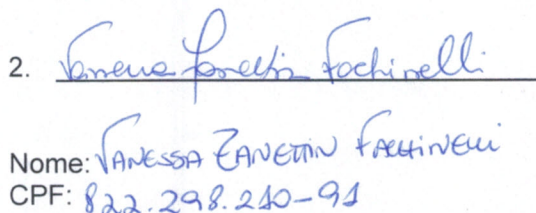 2. Vanessa Zanettin Fachinelli
Nome: VANESSA ZANETTIN FACHINELLI
CPF: 822.298.210-91